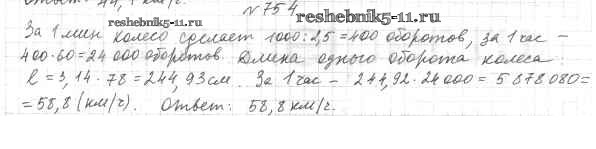 Ответ: 44,1 км/г.
№754
reshebnik5-11.ru
За 1 мин колесо сделает 1000:2,5=400 оборотов, за 1 час –
400·60=24 000 оборотов. Длина одного оборота колеса:
l=3,14·78=244,93см. За 1 час – 244,92·24000=5 878 080=
=58,8 (км/г). Ответ: 58,8 км/г.
reshebnik5-11.ru